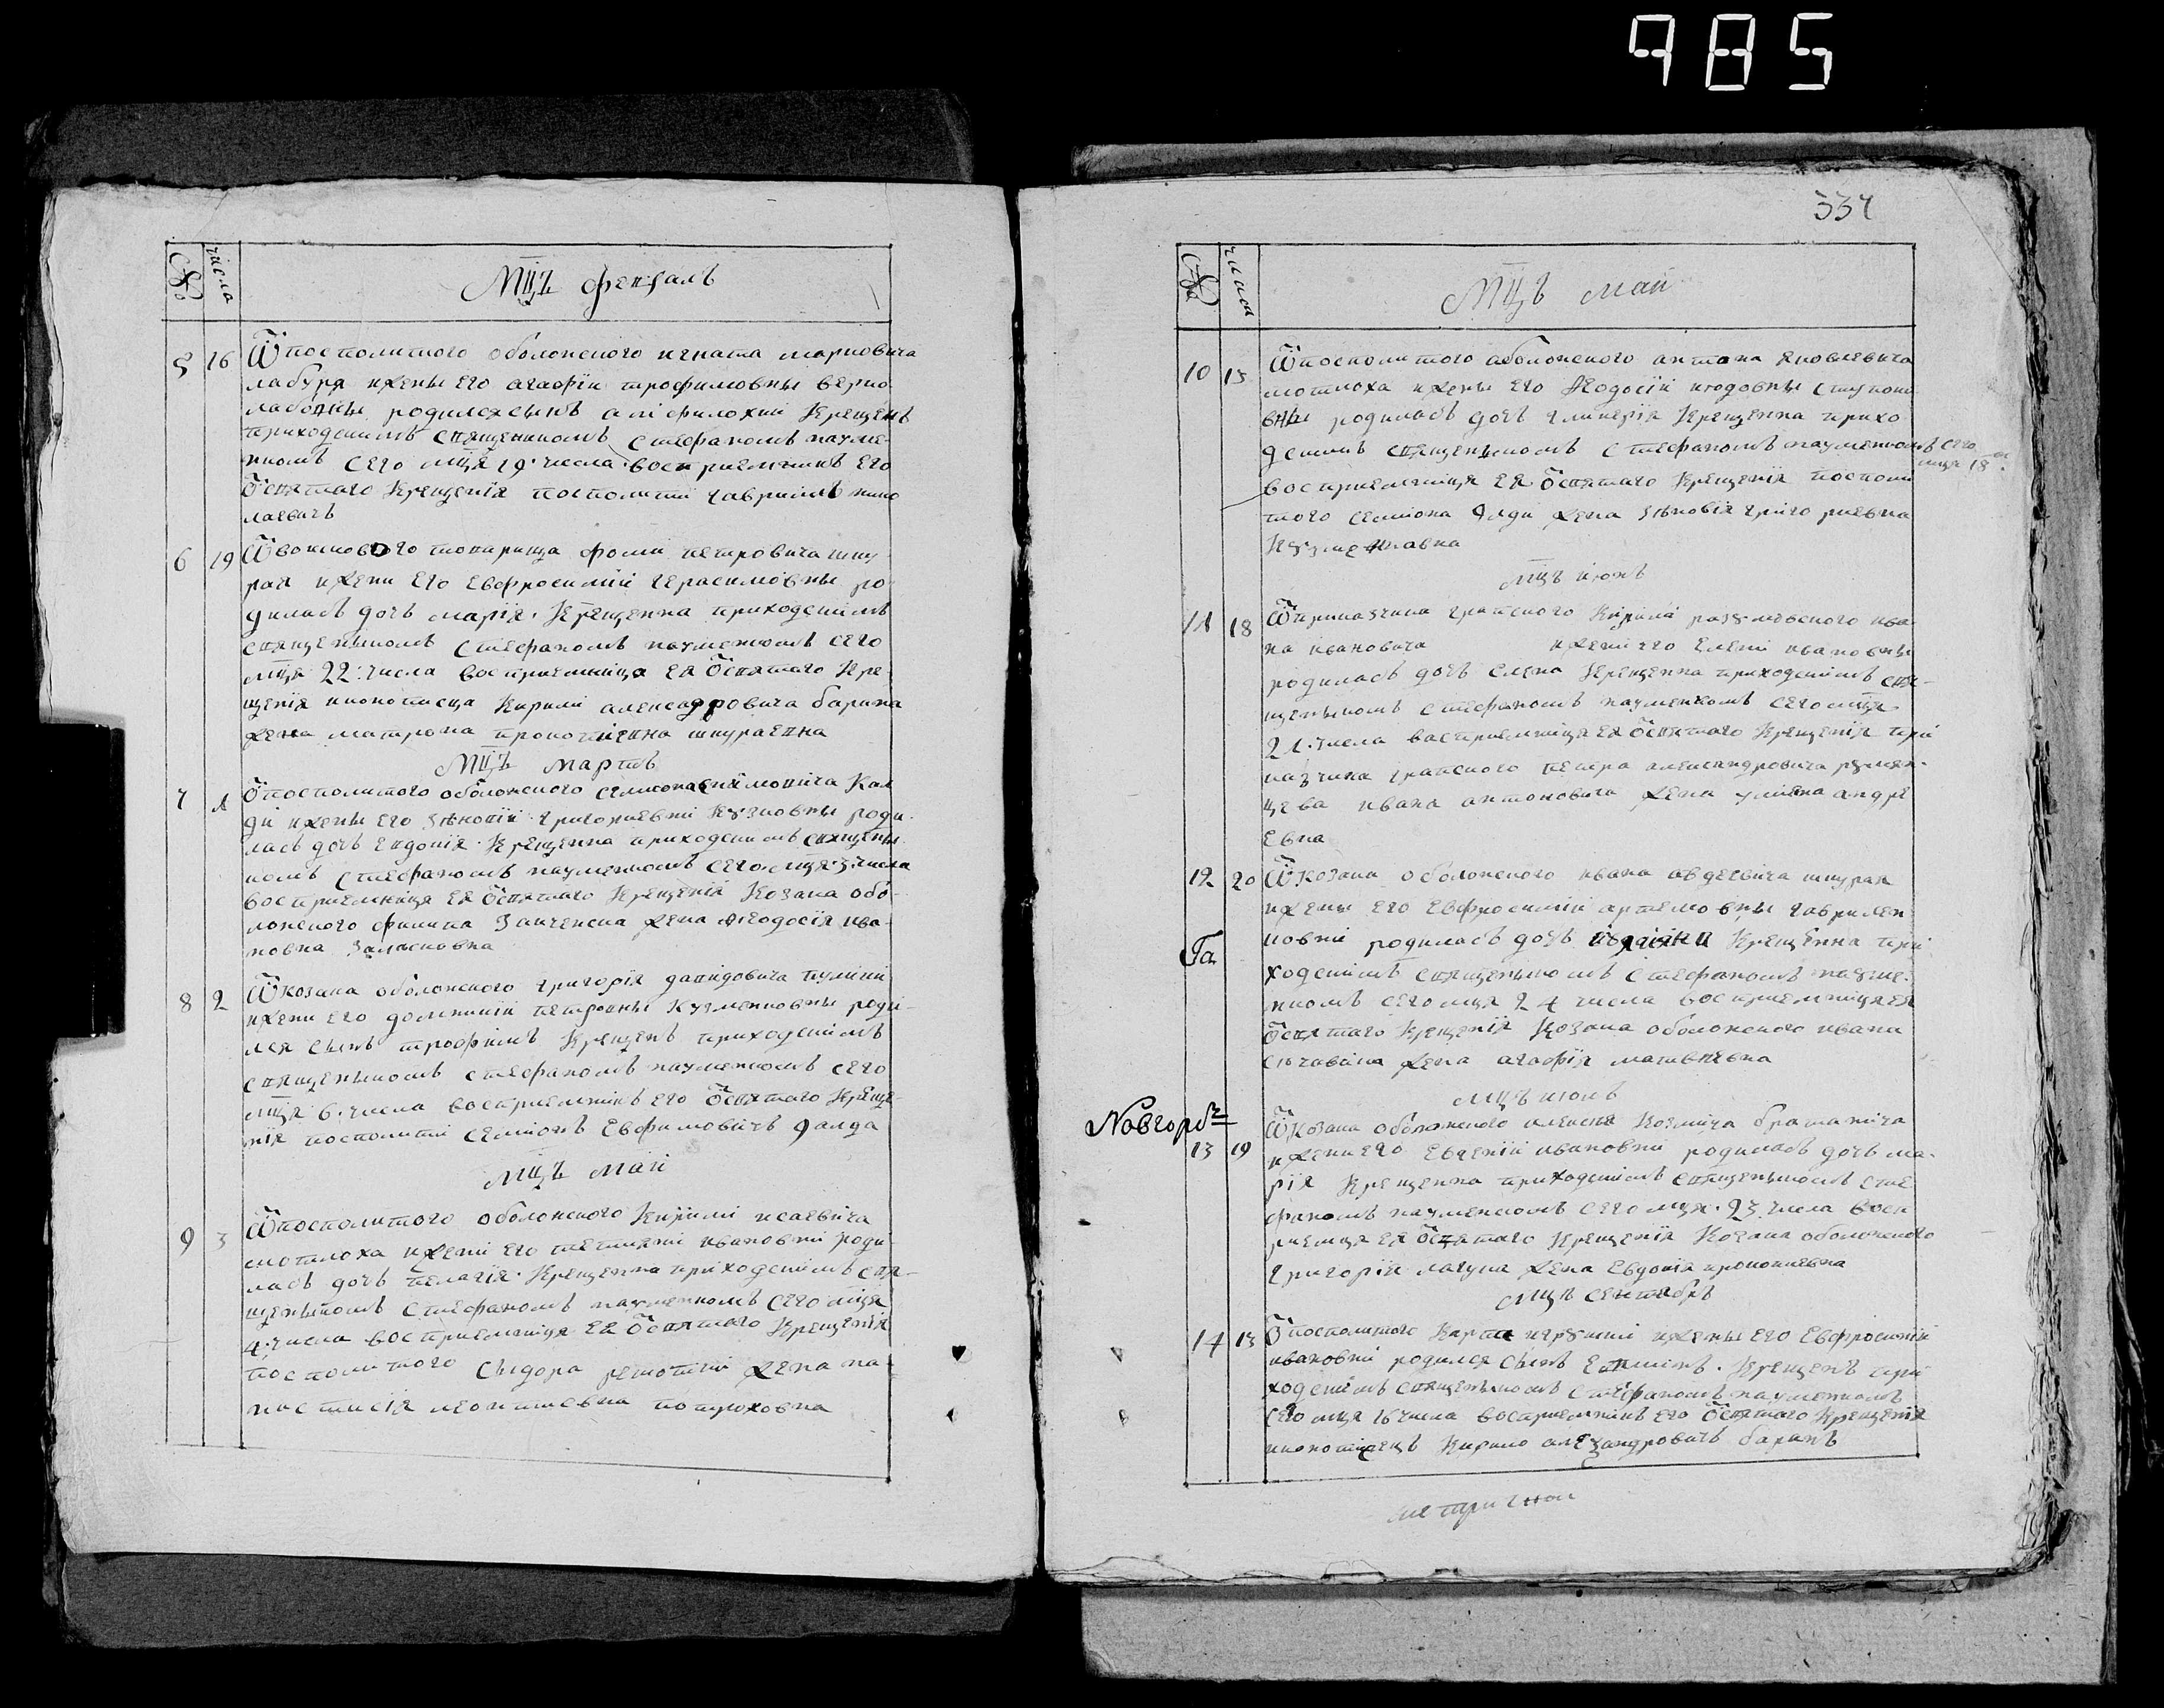 985
№ числа
Мцъ февраль
5 16 Ѿ посполитого оболонского игната марковича
лабуря и жены его агафіи трофимовны верно
лабовны родился сынъ амфилохий Крещенъ
приходскимъ священикомъ стефаномъ науме-
нкомъ сего мца 19 числа восприемникъ его
ѿ святаго Крещенія посполитий гаврыилъ нико
лаевичъ
6 19 Ѿ войскового товарища фоми петровича шку
рая и жени его Евфросиміи герасимовны ро
дилась дочь марія. Крещенна приходскимъ
священыкомъ стефаномъ науменкомъ сего
мца 22: числа восприемница Ея ѿ святаго Кре
щенія иконописца Кирили александровича барана
жена матрона прокопіевна шкураевна
Мцъ Мартъ
7 1 Ѿ посполитого оболонского семиона
ди и жены его зѣновіи григориевни роди
лась дочь Евдокія. Крещенна приходскимъ священы
комъ стефаномъ науменкомъ сего мця 3 числа
восприемница Ея ѿ святаго Крещенія Козака обо
лонского филипа Зинченска жена Ѳеодосія ива
новна
8 2 Ѿ козака оболонского григорія давидовича
и жени его домникии петровны Кузменковны роди
лся сынъ трофимъ Крещенъ приходскимъ
священыкомъ стефаномъ науменкомъ сего
мця 6. числа восприемникъ его ѿ святаго Креще-
нія посполитий семіонъ Евфимовичъ Ѳалда
мцъ май
9 3 Ѿ посполитого оболонского Кирили исаевича
мотлоха и жени его тетияни ивановни роди
лась дочь пелагія. Крещенна приходскимъ свя-
щеныкомъ стефаномъ науменкомъ сего мця
4. числа восприемница Ея ѿ святаго Крещенія
посполитого сыдора жена на-
стасія
334
№ числа
мцъ май
10 15 Ѿ посполитого оболонского антона яковлевича
мотлоха и жены его Ѳеодосіи юдовны ступко
вны родилась дочь гликерія Крещенна прихо
дскимъ священыкомъ стефаномъ науменкомъ сего
мця 18
восприемница ЕЯ ѿ святаго Крещенія посполи
того семиона Ѳалди жена Зѣновія григориевна

мцъ июнь
11 18 Ѿ приказчика графского Кирила разумовского ива
на ивановича и жени его Елени ивановны
родилась дочь Елена Крещенна приходскимъ свя-
щеныкомъ стефаномъ науменкомъ сего мця
21. числа восприемница ЕЯ ѿ святаго Крещенія при
казчика графского петра александровича румян-
цева ивана антоновича жена улияна андре
евна
12 20 Ѿ козака оболонского ивана авдеевича шкурая
и жены его Евфросимии артемовны гаврилен
ковни родилась дочь Крещенна при
ходскимъ священыкомъ стефаномъ науме-
нкомъ сего мця 24 числа восприемница ея
ѿ святаго Крещенія Козака оболонского ивана
жена агафія матвѣевна
Га
мцъ июль
Новгоро
13 19 Ѿ Козака оболонского алексея Козмича
и жени его Евгеніи ивановни родилась дочь ма-
рія Крещенна приходскимъ священыкомъ сте
фаномъ науменкомъ сего мця. 23 числа восп
риемца ея ѿ святаго Крещенія Козака оболонского
григорія лагуна жена Евдокія прокопиевна
мцъ сентябръ
14 13 Ѿ посполитого Карпа и жены его Евфросинии
ивановни родился сынъ Крещенъ при
ходскимъ священыкомъ стефаномъ науменкомъ
сего мця 16 числа восприемникъ его ѿ святаго Крещенія
иконописецъ Кирило алезандровичъ баранъ